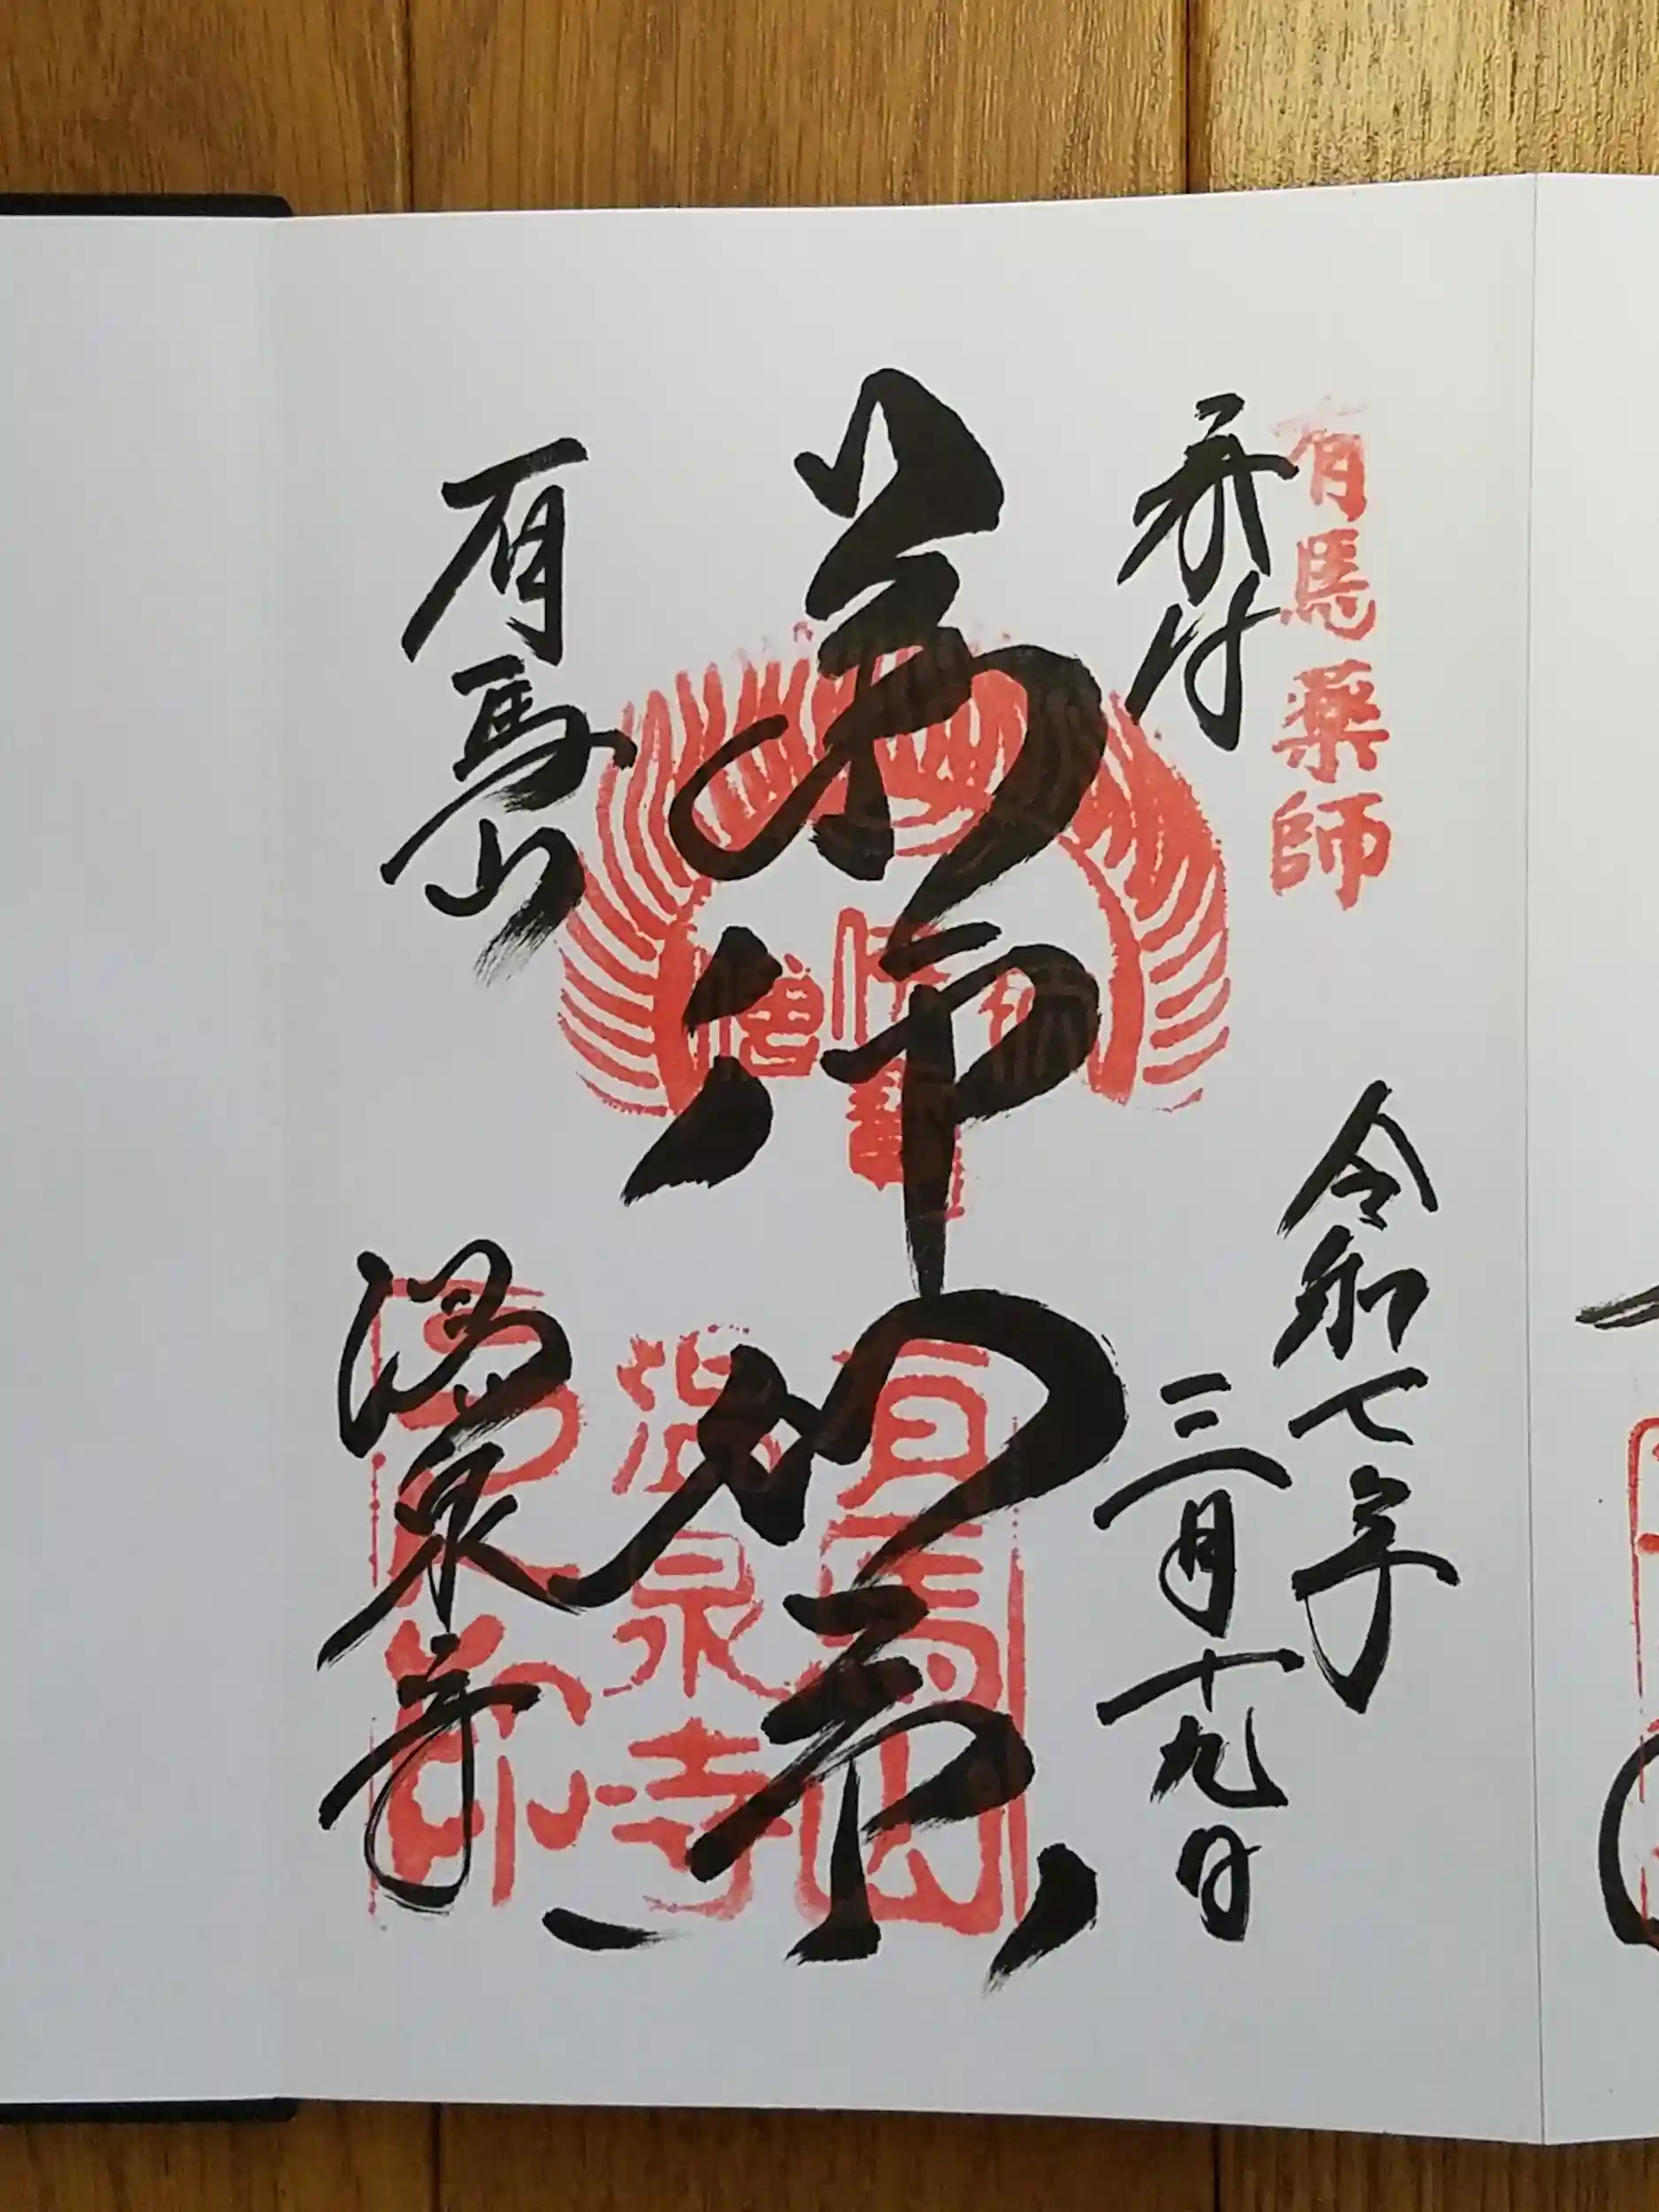 有馬薬師
奉拝
令和七年
三月十九日
薬師如来
有馬山
温泉寺
有馬山
温泉寺